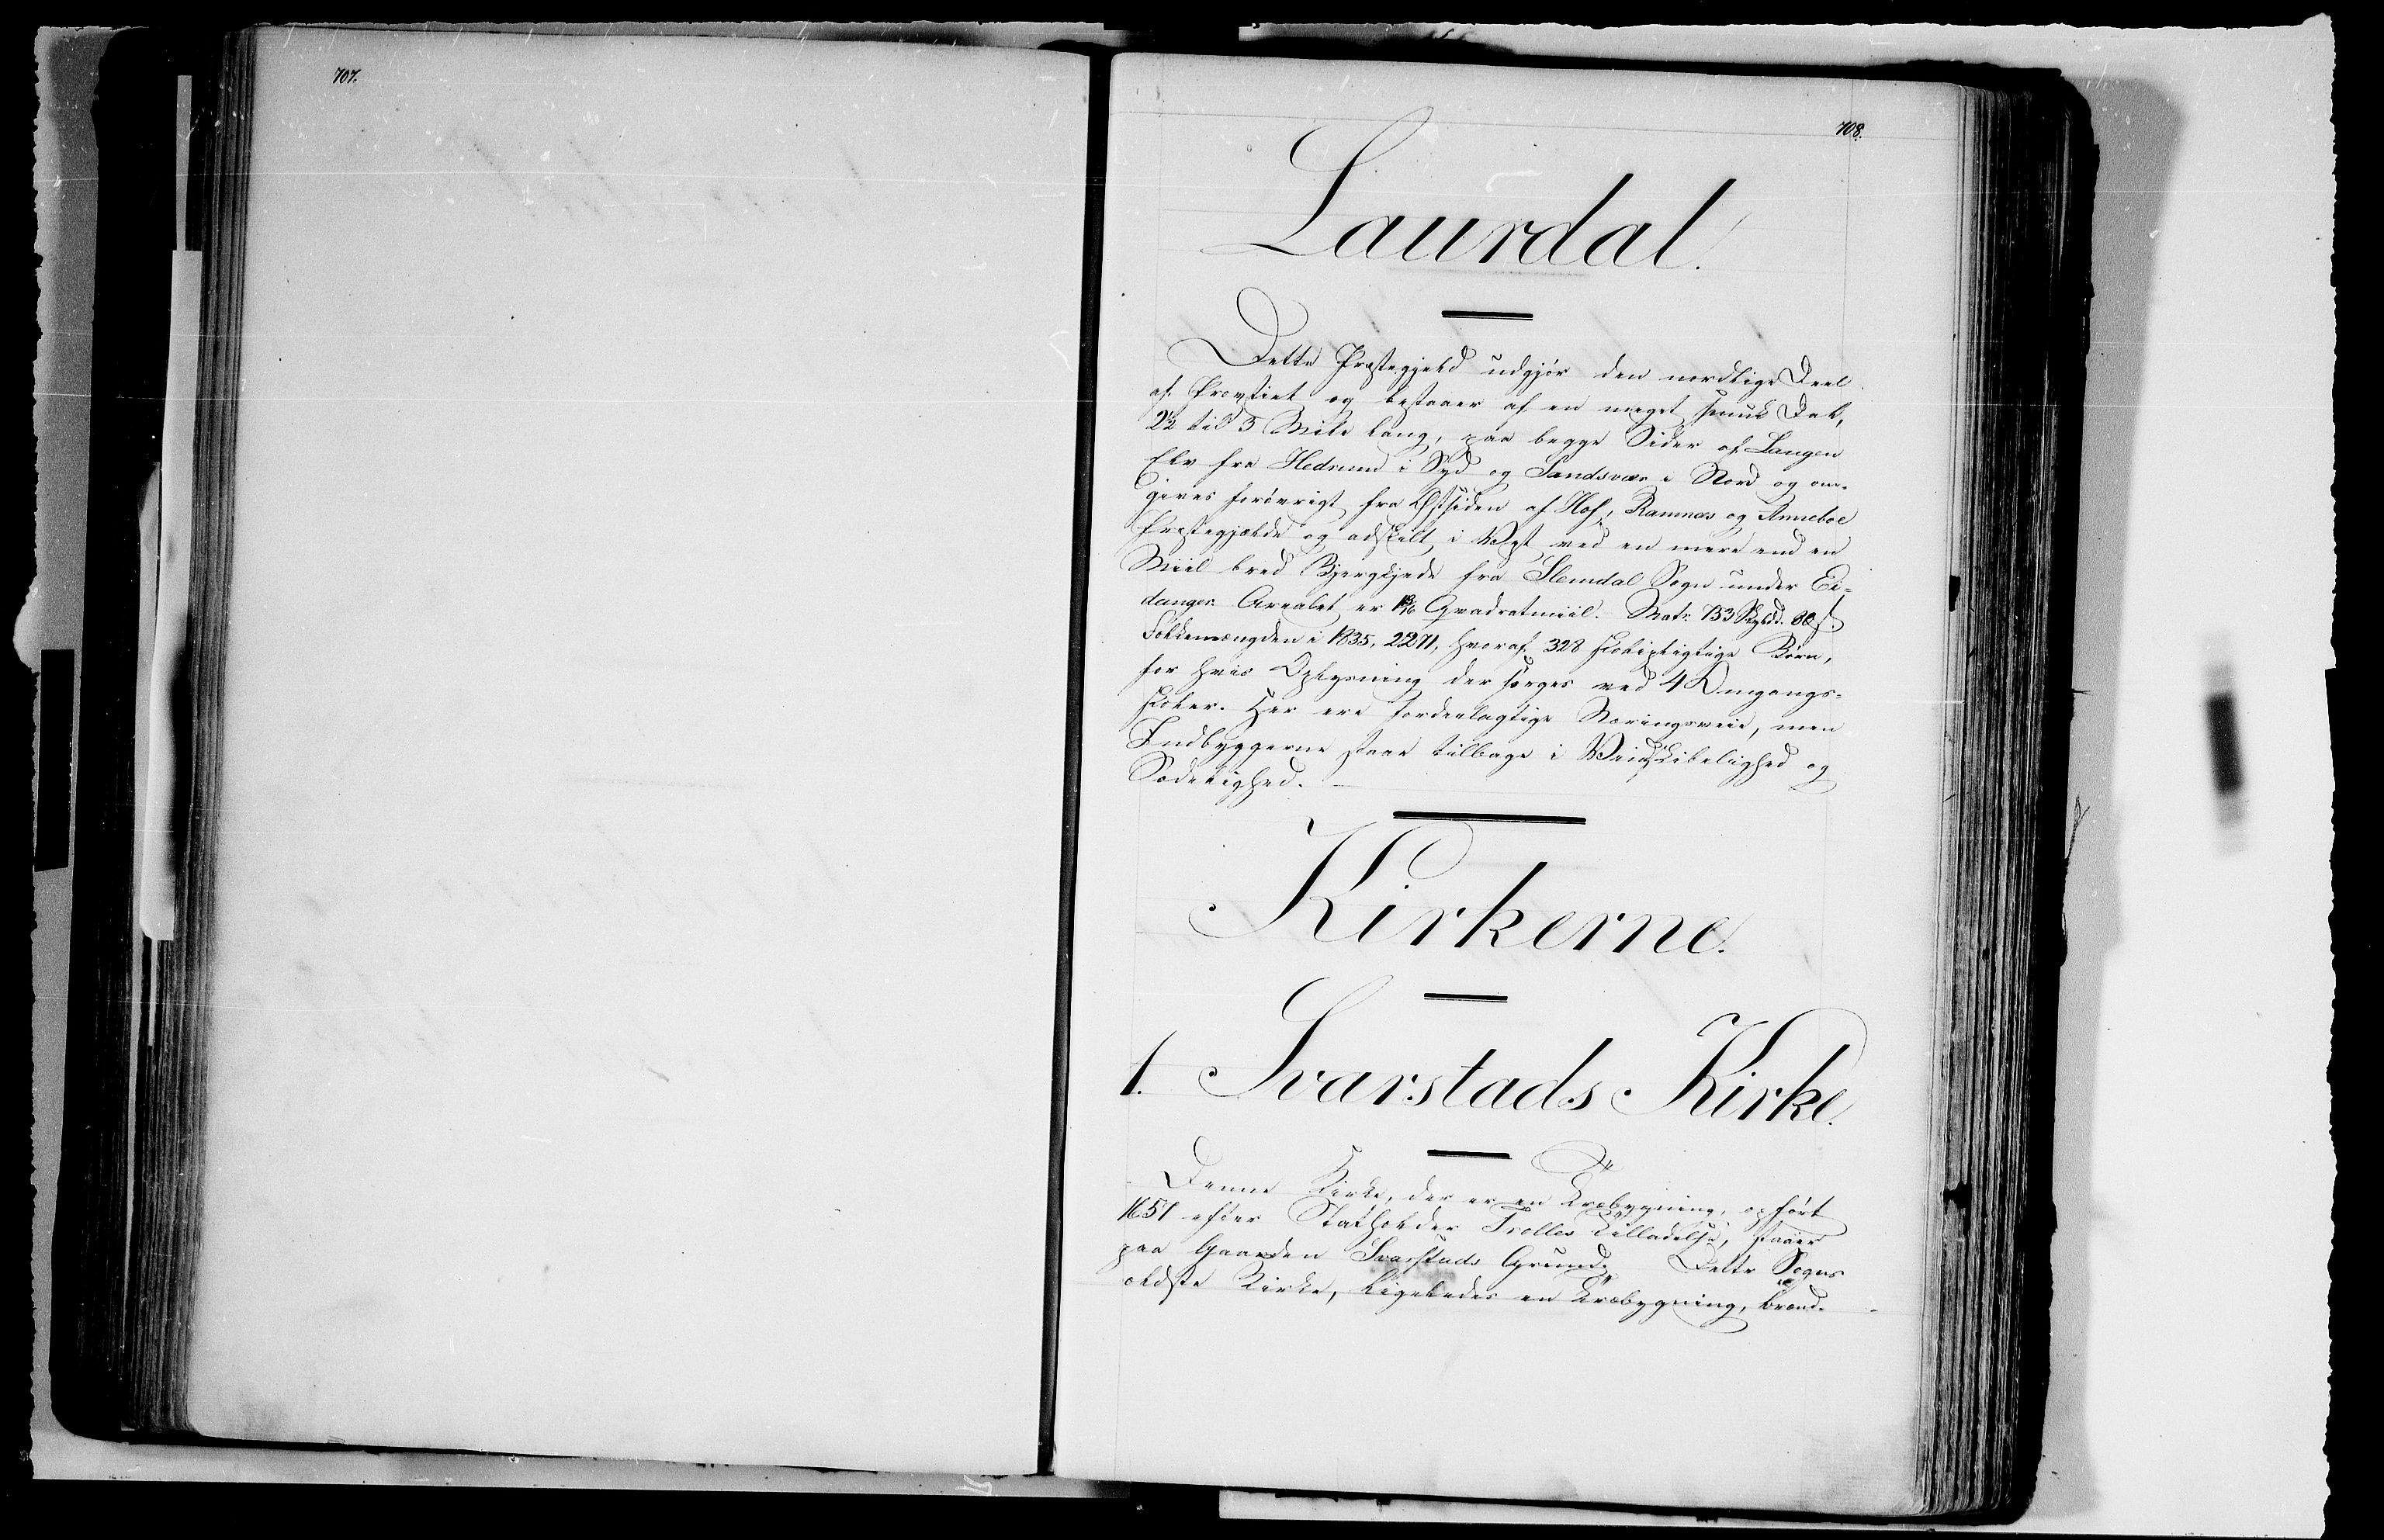 707.
708.
Laurdal.
Dette Præstegjæld udgjør den nordlige Deel
af Provstiet og bestaaer af en meget smuk Dal,
2½ til 3 Mile lang, paa begge Sider af Laugen
Elv fra Hedrum i Syd og Sandsvær i Nord og om-
gives forøvrigt fra Østsiden af Hof, Ramnæs og Anneboe
Præstegjælde og adskilt i Vest ved en mere end en
Miil bred Bjergkjede fra Slemdal Sogn under Ei-
danger. Arealet er Qvadratmiil. Matr. 153 Skyldd.
Folkemængden i 1835, 2271, hvoraf 328 skolepligtige Børn,
for hvis Oplysning der sørges ved 4 Omgangs-
skoler. Her ere fordeelagtige Næringsveie, men
Indbyggerne staae tilbage i Vindskibelighed og
Sædelighed.
Kirkerne.
1. Svarstads Kirke.
Denne Kirke, der er en Træbygning, opført
1657 efter Statholder Trolles Tilladelse, staaer
paa Gaarden Svarstads Grund. Dette Sogns
ældste Kirke, ligeledes en Træbygning, brænd-